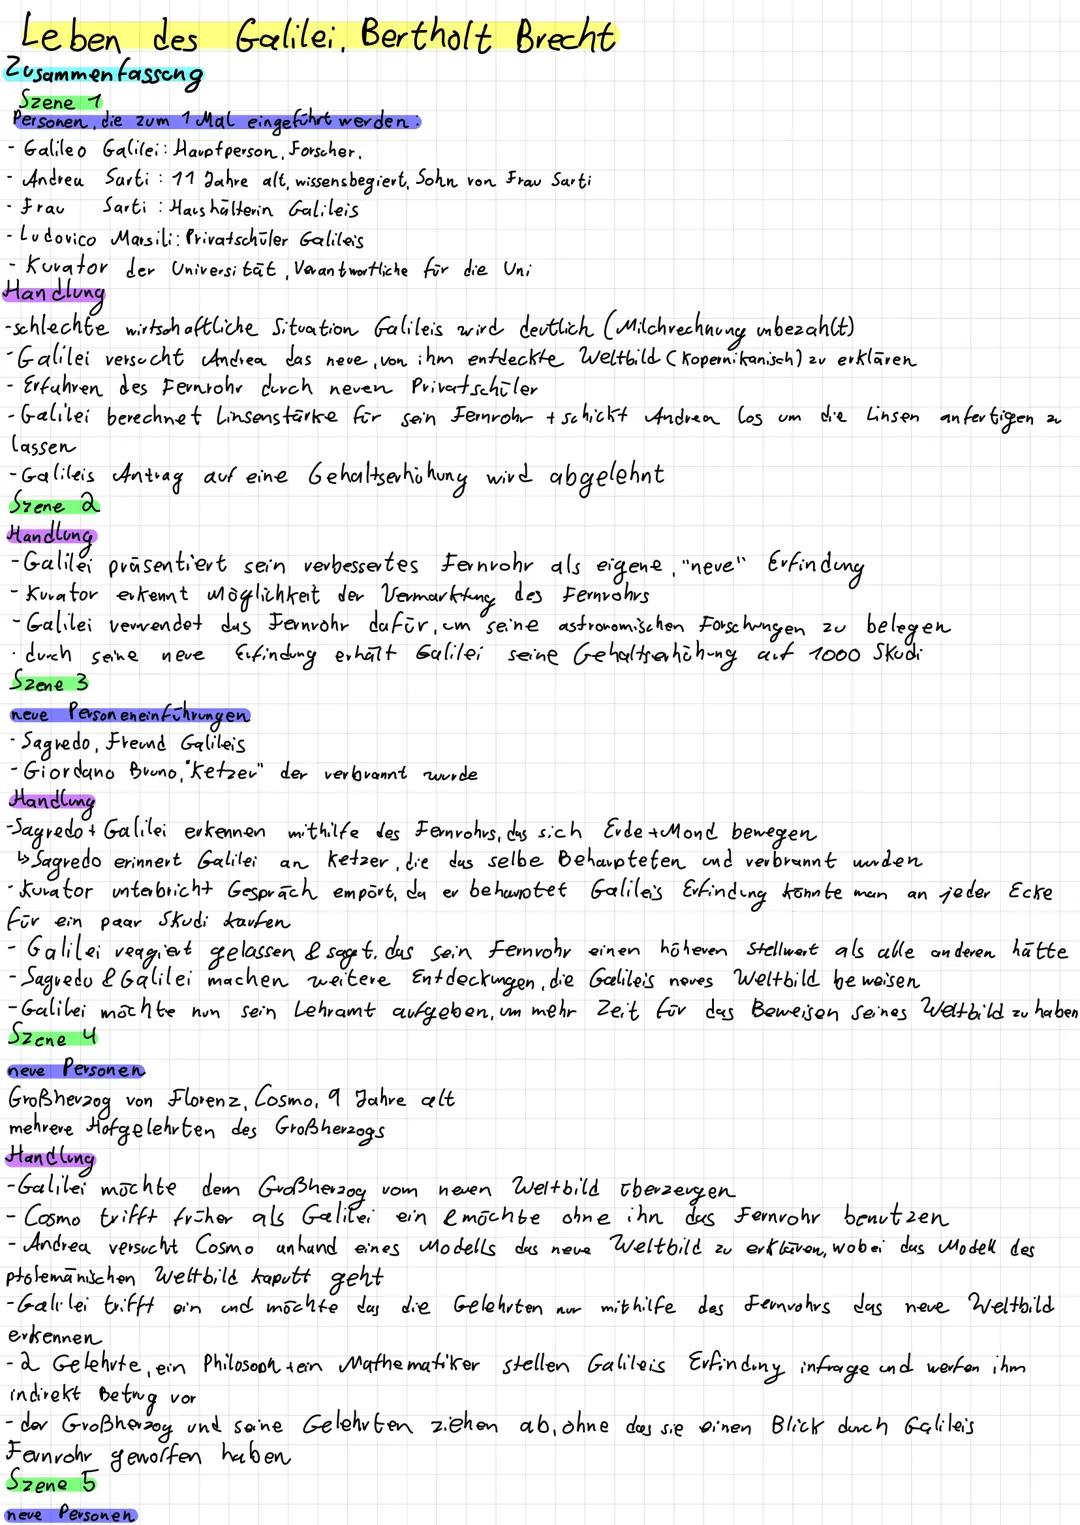 Leben des Galilei, Bertholt Brecht
Zusammenfassung
Szene 1
Personen, die zum 1 Mal eingeführt werden:
- Galileo Galilei: Hauptperson, Forscher.
- Andrea Sarti: 11 Jahre alt, wissensbegiert, Sohn von Frau Sarti
- Frau Sarti: Haushälterin Galileis
- Ludovico Marsili: Privatschüler Galileis
- Kurator der Universität, Verantwortliche für die Uni
Handlung
-schlechte wirtschaftliche Situation Galileis wird deutlich (Milchrechnung unbezahlt)
- Galilei versucht Andrea das neue, von ihm entdeckte Weltbild (Kopernikanisch) zu erklären
- Erfahren des Fernrohr durch neuen Privatschüler
- Galilei berechnet Linsenstärke für sein Fernrohr + schickt Andrea los um die Linsen anfertigen zu
lassen
- Galileis Antrag auf eine Gehaltserhöhung wird abgelehnt
Szene 2
Handlung
- Galilei präsentiert sein verbessertes Fernrohr als eigene, "neue" Erfindung
- Kurator erkennt Möglichkeit der Vermarktung des Fernrohrs
- Galilei verwendet das Fernrohr dafür, um seine astronomischen Forschungen zu belegen
- durch seine neue Erfindung erhält Galilei seine Gehaltserhöhung auf 1000 Skudi
Szene 3
neue Personeneinführungen
- Sagredo, Freund Galileis
- Giordano Bruno, "Ketzer" der verbrannt wurde
Handlung
-Sagredo + Galilei erkennen mithilfe des Fernrohrs, das sich Erde + Mond bewegen
↳ Sagredo erinnert Galilei an Ketzer, die das selbe Behaupteten und verbrannt wurden
- Kurator unterbricht Gespräch empört, da er behauptet Galileis Erfindung könnte man an jeder Ecke
für ein paar Skudi kaufen
- Galilei reagiert gelassen & sagt, das sein Fernrohr einen höheren Stellwert als alle anderen hätte
- Sagredo & Galilei machen weitere Entdeckungen, die Galileis neues Weltbild beweisen
- Galilei möchte nun sein Lehramt aufgeben, um mehr Zeit für das Beweisen seines Weltbild zu haben
Szene 4
neue Personen
Großherzog von Florenz, Cosmo, 9 Jahre alt
mehrere Hofgelehrten des Großherzogs
Handlung
- Galilei möchte dem Großherzog vom neuen Weltbild überzeugen
- Cosmo trifft früher als Galilei ein & möchte ohne ihn das Fernrohr benutzen
- Andrea versucht Cosmo anhand eines Modells das neue Weltbild zu erklären, wobei das Modell des
ptolemänischen Weltbild kaputt geht
- Galilei trifft ein und möchte das die Gelehrten nur mithilfe des Fernrohrs das neue Weltbild
erkennen
- 2 Gelehrte, ein Philosoph + ein Mathematiker stellen Galileis Erfindung infrage und werfen ihm
indirekt Betrug vor
- der Großherzog und seine Gelehrten ziehen ab, ohne das sie einen Blick durch Galileis
Fernrohr geworfen haben
Szene 5
neue Personen